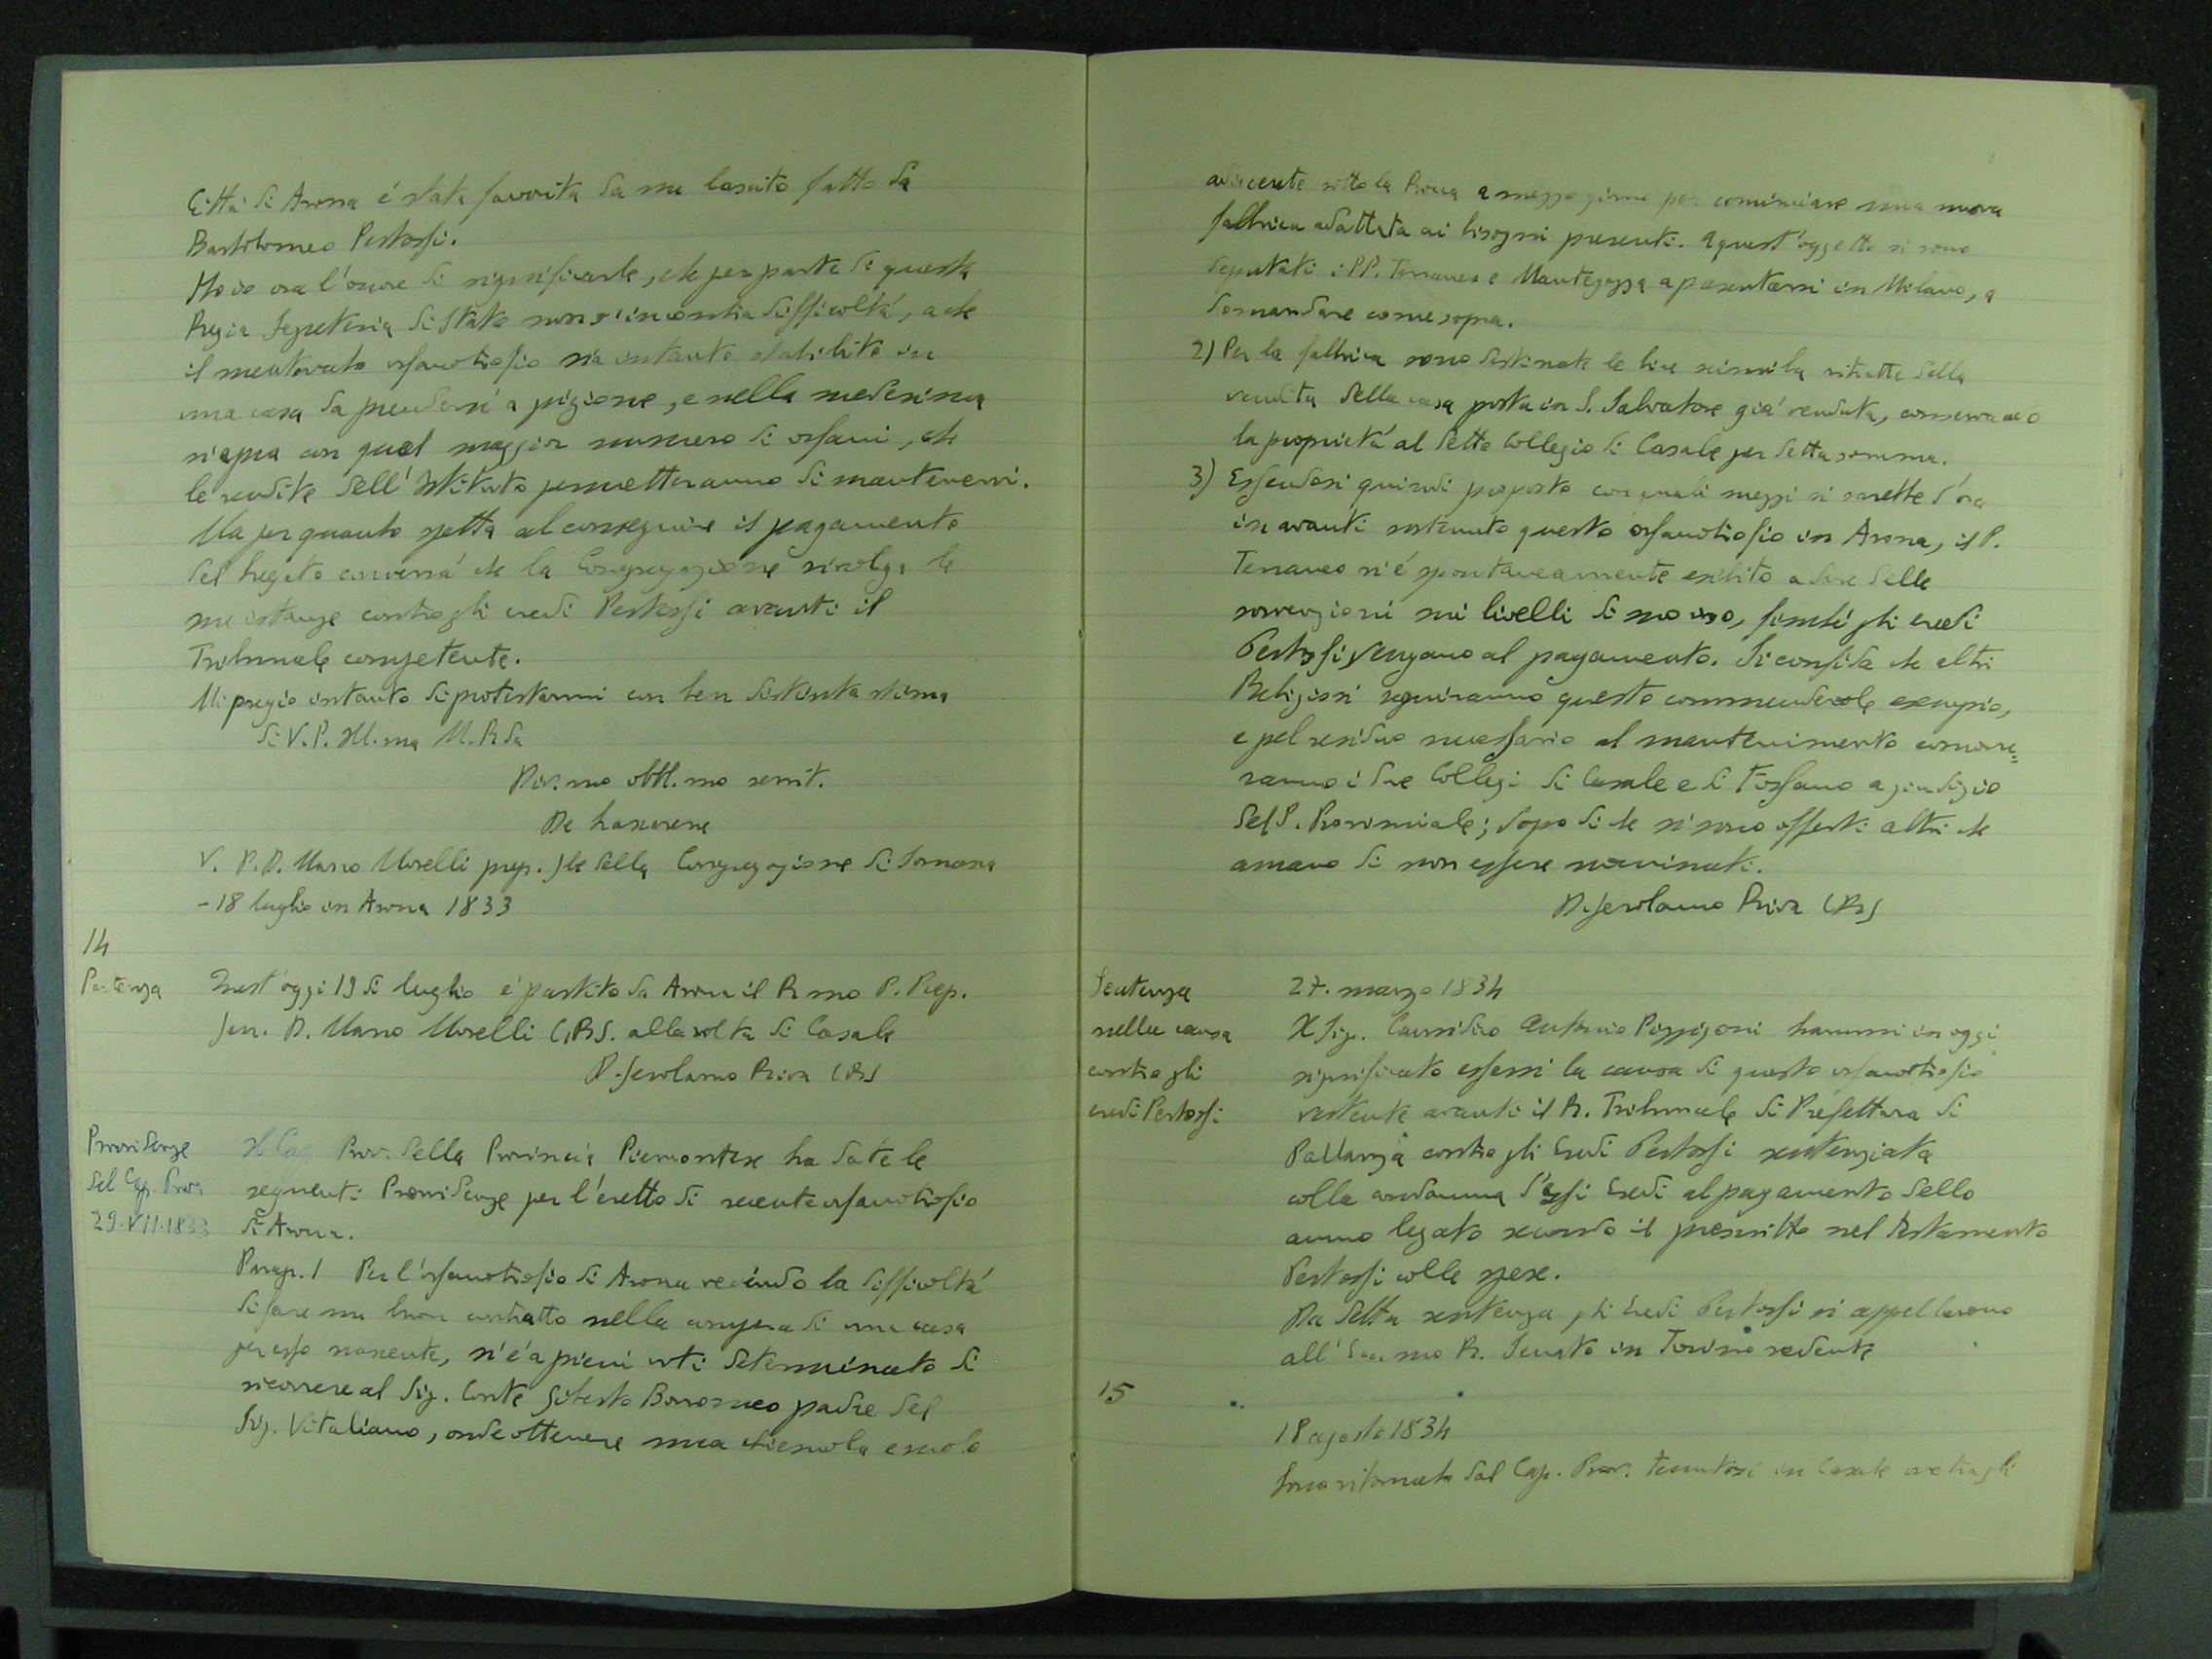 Città di Arona é stata favorita da un lascito fatto da
Bartolomeo Pertossi.
Ho io ora l'onore di significarle, che per parte di questa
Regia Segreteria di Stato non s'incontra difficoltá, a che
il mentovato orfanotrofio sia intanto stabilito in
una casa da prendersi a pigione, e nella medesima
s'apra con quel maggior numero di orfani, che
le rendite dell'Istituto permetteranno di mantenervi.
Ma per quanto spetta al conseguire il pagamento
del legato converrá che la Congregazione rivolga le
sue istanze contro gli eredi Pertossi avanti il
Tribunale competente.
Mi pregio intanto di protestarmi con ben distinta stima
di V. P. Ill.ma M. R.da
Div.mo obbl.mo servit.
De Lascarene
V. P. D. Marco Morelli prep. gle della Congregazione di Somasca
- 18 luglio in Arona 1833
14
Partenza
Quest'oggi 19 di luglio é partito da Arona il R.mo P. Prep.
Gen. D. Marco Morelli CRS. alla volta di Casale
D. Gerolamo Riva CRS
Providenze
del Cap. Prov.
29.VII.1833
Il Cap. Prov. della Provincia Piemontese ha date le
seguenti Providenze per l'eretto di recente orfanotrofio
di Arona.
Parag. 1 Per l'orfanotrofio di Arona vedendo la difficoltá
di fare un buon contratto nella compera di una casa
per esso nascente, si é a pieni voti determinato di
ricorrere al Sig. Conte Giberto Borromeo padre del
Sig. Vitaliano, onde ottenere una chiesuola e suolo
adiacente sotto la Rocca a mezzogiorno per cominciare una nuova
fabbrica adattata ai bisogni presenti. A quest'oggetto si sono
deputati i PP. Terraneo e Mantegazza a presentarsi in Milano, a
domandare come sopra.
2) Per la fabbrica sono destinate le lire seimila ritratte della
vendita della casa posta in S. Salvatore giá venduta, conservando
la proprietá al detto Collegio di Casale per detta somma.
3) Essendosi quindi proposto con quali mezzi si sarebbe d'ora
in avanti sostenuto questo orfanotrofio in Arona, il P.
Terraneo si é spontaneamente esibito a dare delle
sovvenzioni sui livelli di suo uso, finché gli eredi
Pertossi vengano al pagamento. Si confida che altri
Religiosi seguiranno questo commendevole esempio,
e pel residuo necessario al mantenimento concorre=
ranno i due Collegi di Casale e di Fossano a giudizio
del P. Provinciale; dopo di che si sono offerti altri che
amano di non essere nominati.
D. Gerolamo Riva CRS
Sentenza
nella causa
contro gli
eredi Pertossi
27. marzo 1834
Il Sig. Causidico Antonio Pizzigoni hammi in oggi
significato essersi la causa di questo orfanotrofio
vertente avanti il R. Tribunale di Prefettura di
Pallanza contro gli Eredi Pertossi sentenziata
colla condanna d'essi Eredi al pagamento dello
annuo legato secondo il prescritto nel testamento
Pertossi colle spese.
Da detta sentenza gli Eredi Pertossi si appellarono
all'Ecc.mo R. Senato in Torino sedente
15
18 agosto 1834
Sono ritornato dal Cap. Prov. tenutosi in Casale ove tra gli